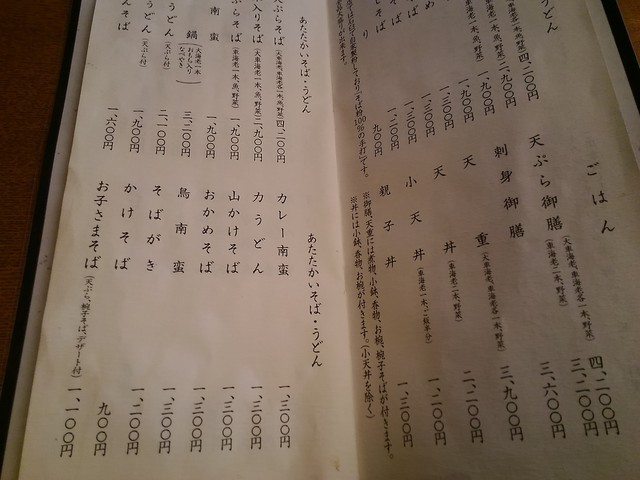 うどん 四、二〇〇円
車海老各一本、魚、野菜) 二、九〇〇円
一、九〇〇円
一、九〇〇円
一、三〇〇円
一、三〇〇円
そば 一、二〇〇円
り 九〇〇円
そば粉100%の手打です。
ごはん
天ぷら御膳 (大車海老、車海老各一本、野菜) 四、二〇〇円
三、二〇〇円
刺身御膳 三、六〇〇円
天重 (大車海老、車海老各一本、野菜) 三、九〇〇円
天丼 (車海老二本、野菜) 二、二〇〇円
小天丼 (車海老一本、ご飯半分) 一、二〇〇円
親子丼 一、三〇〇円
※御膳、天重には煮物、小鉢、香物、お椀、椀子そばが付きます。
※丼には小鉢、香物、お椀が付きます。(小天丼を除く)
あたたかいそば・うどん
天ぷらそば (大車海老、車海老各一本、魚、野菜) 四、二〇〇円
入りそば (大車海老一本、魚、野菜) 二、九〇〇円
ぷらそば (車海老一本、魚、野菜) 一、九〇〇円
南蛮 一、九〇〇円
鍋 (大海老一本 おもち入り なべやき) 三、三〇〇円
うどん (天ぷら付) 二、一〇〇円
うどん (天ぷら付) 一、九〇〇円
んそば 一、六〇〇円
あたたかいそば・うどん
カレー南蛮 一、三〇〇円
力うどん 一、三〇〇円
山かけそば 一、三〇〇円
おかめそば 一、三〇〇円
鳥南蛮 一、三〇〇円
そばがき 一、二〇〇円
かけそば 九〇〇円
お子さまそば (天ぷら、椀子そば、デザート付) 一、一〇〇円